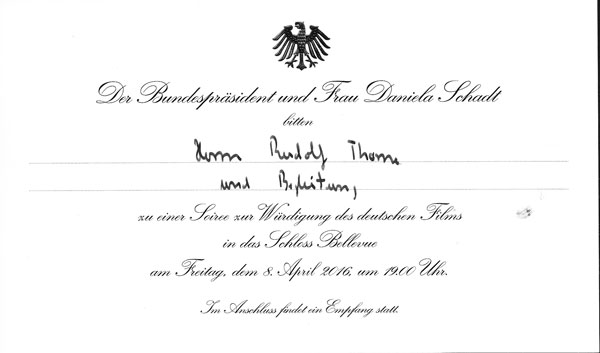 Der Bundespräsident und Frau Daniela Schadt
bitten
Herrn Rudolf Thome
und Begleitung
zu einer Soiree zur Würdigung des deutschen Films
in das Schloss Bellevue
am Freitag, dem 8. April 2016, um 19.00 Uhr.
Im Anschluss findet ein Empfang statt.